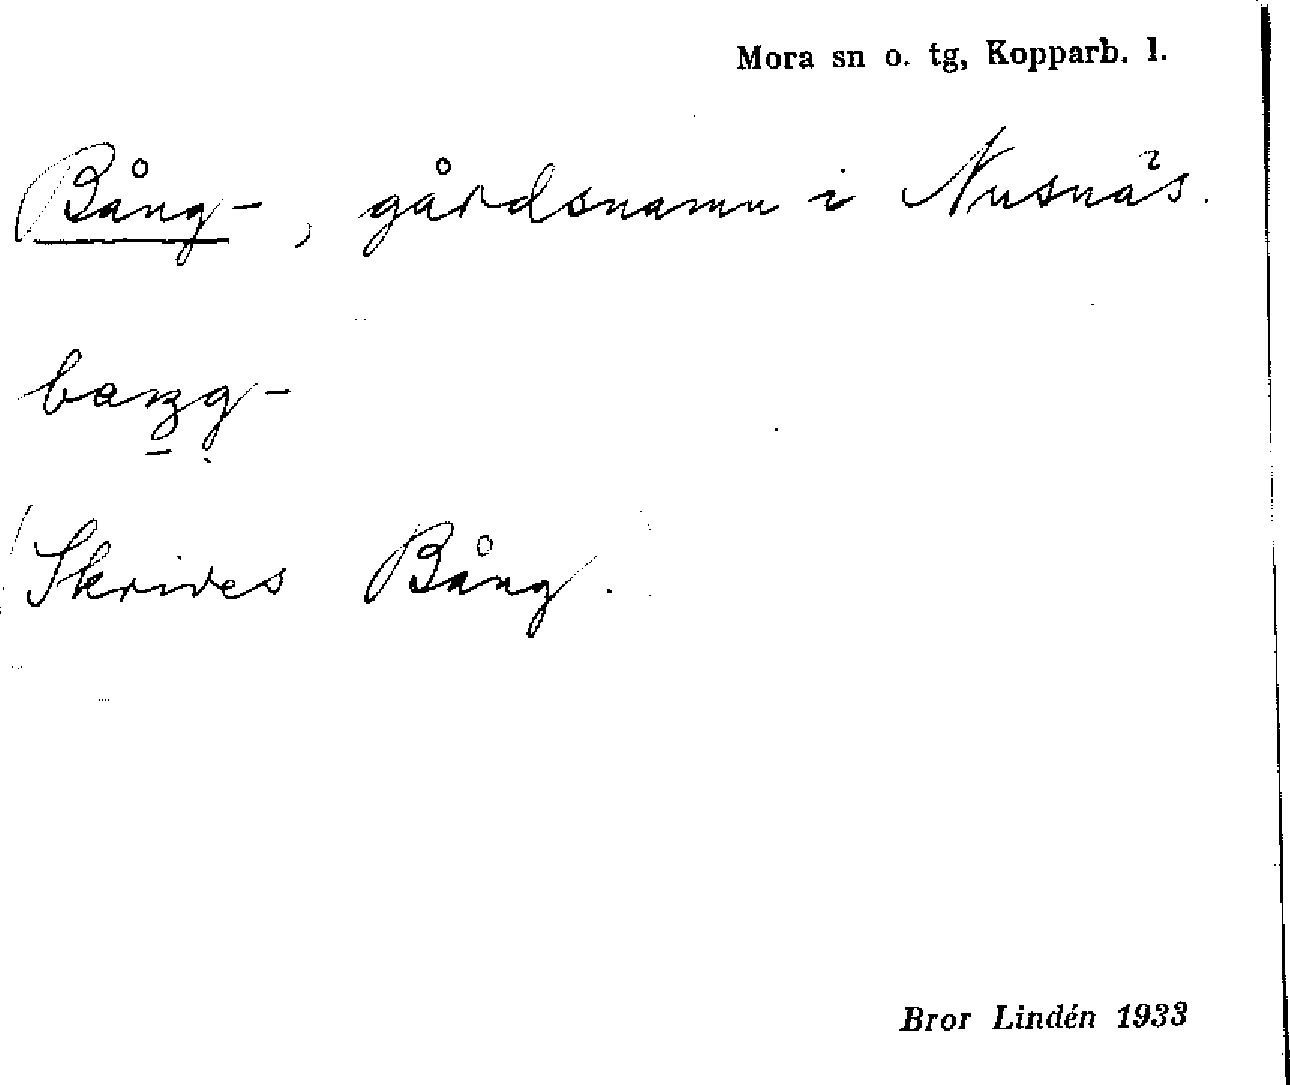 Mora sn o. tg, Kopparb. l.
Bång-, gårdsnamn i Nusnäs.
baŋg-
Skrives Bång.
Bror Lindén 1933